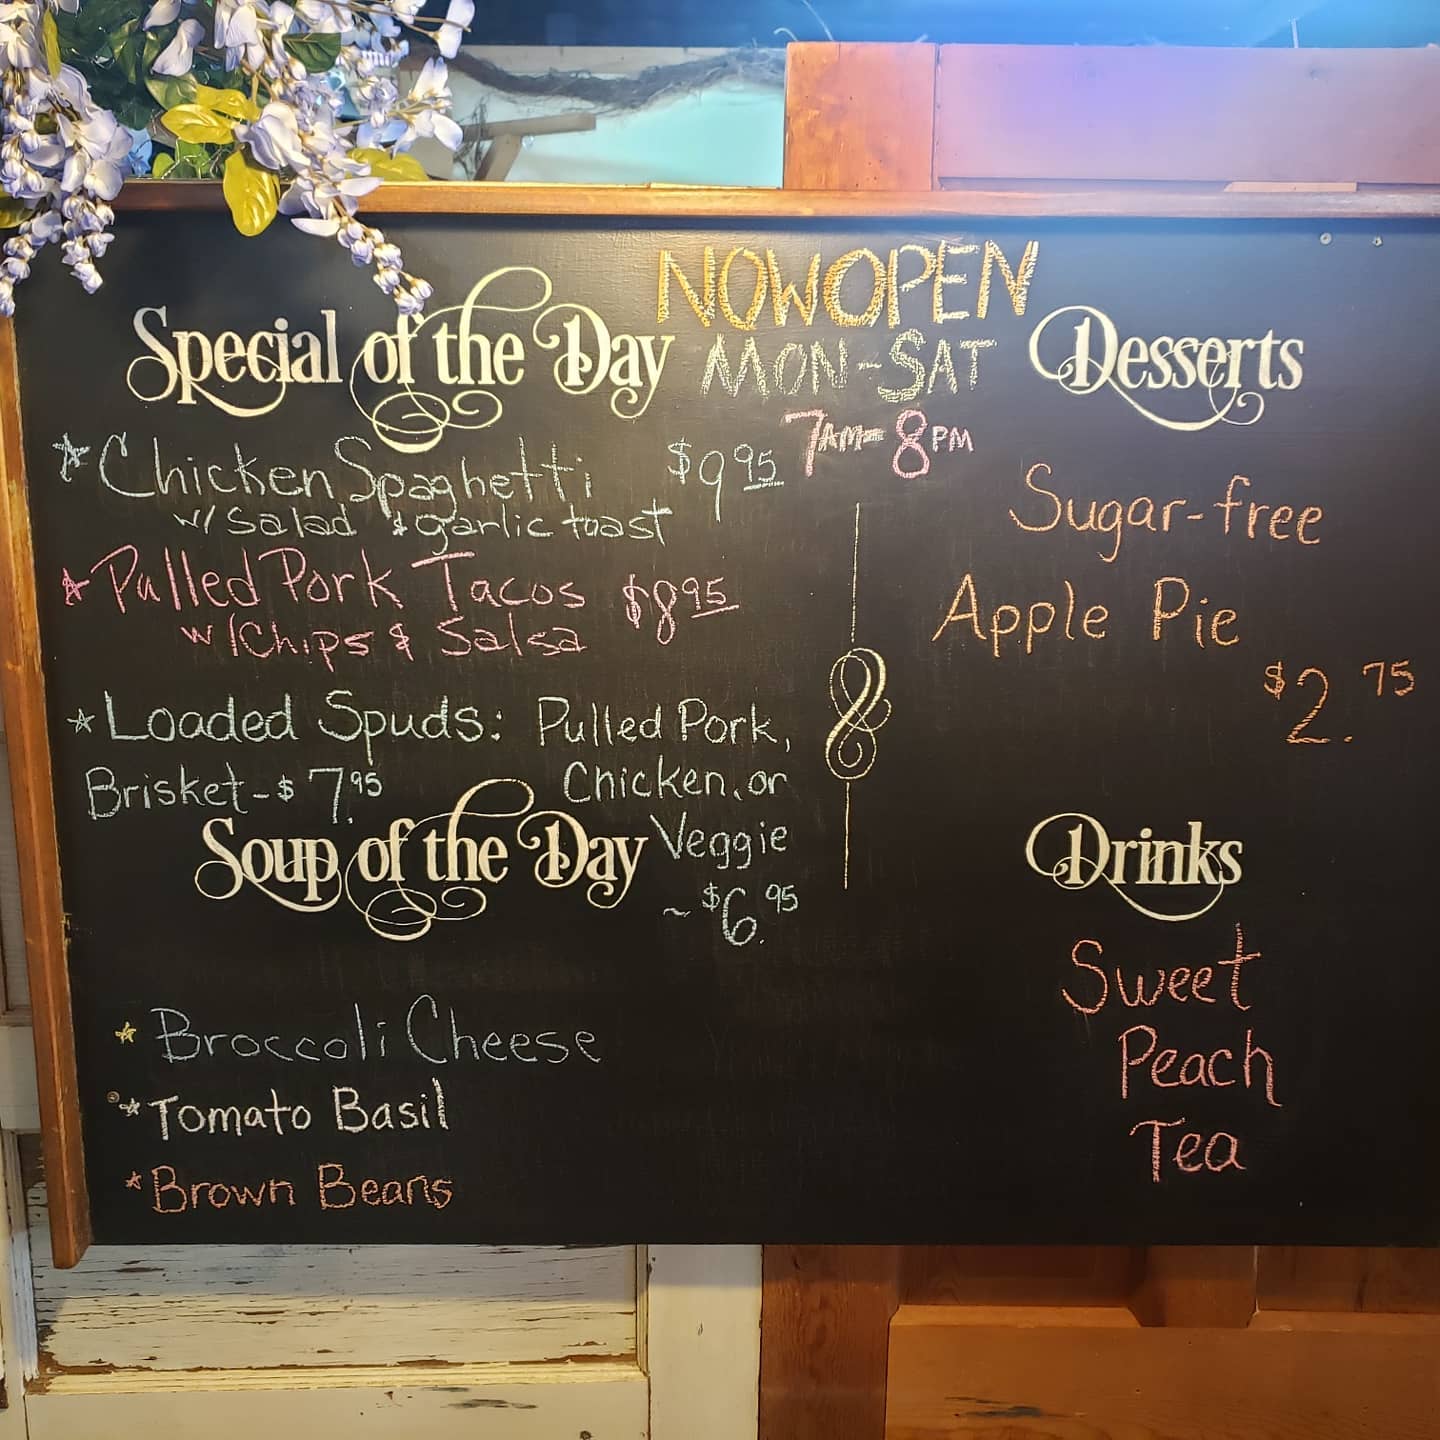 NOW OPEN
MON-SAT
7AM-8PM
Special of the Day
Chicken Spaghetti $9.95
w/ Salad & garlic toast
Pulled Pork Tacos $8.95
w/Chips & Salsa
Loaded Spuds: Pulled Pork,
Chicken, or
Veggie
~ $6.95
Brisket-$7.95
Soup of the Day
Broccoli Cheese
Tomato Basil
Brown Beans
Desserts
Sugar-free
Apple Pie
$2.75
Drinks
Sweet
Peach
Tea